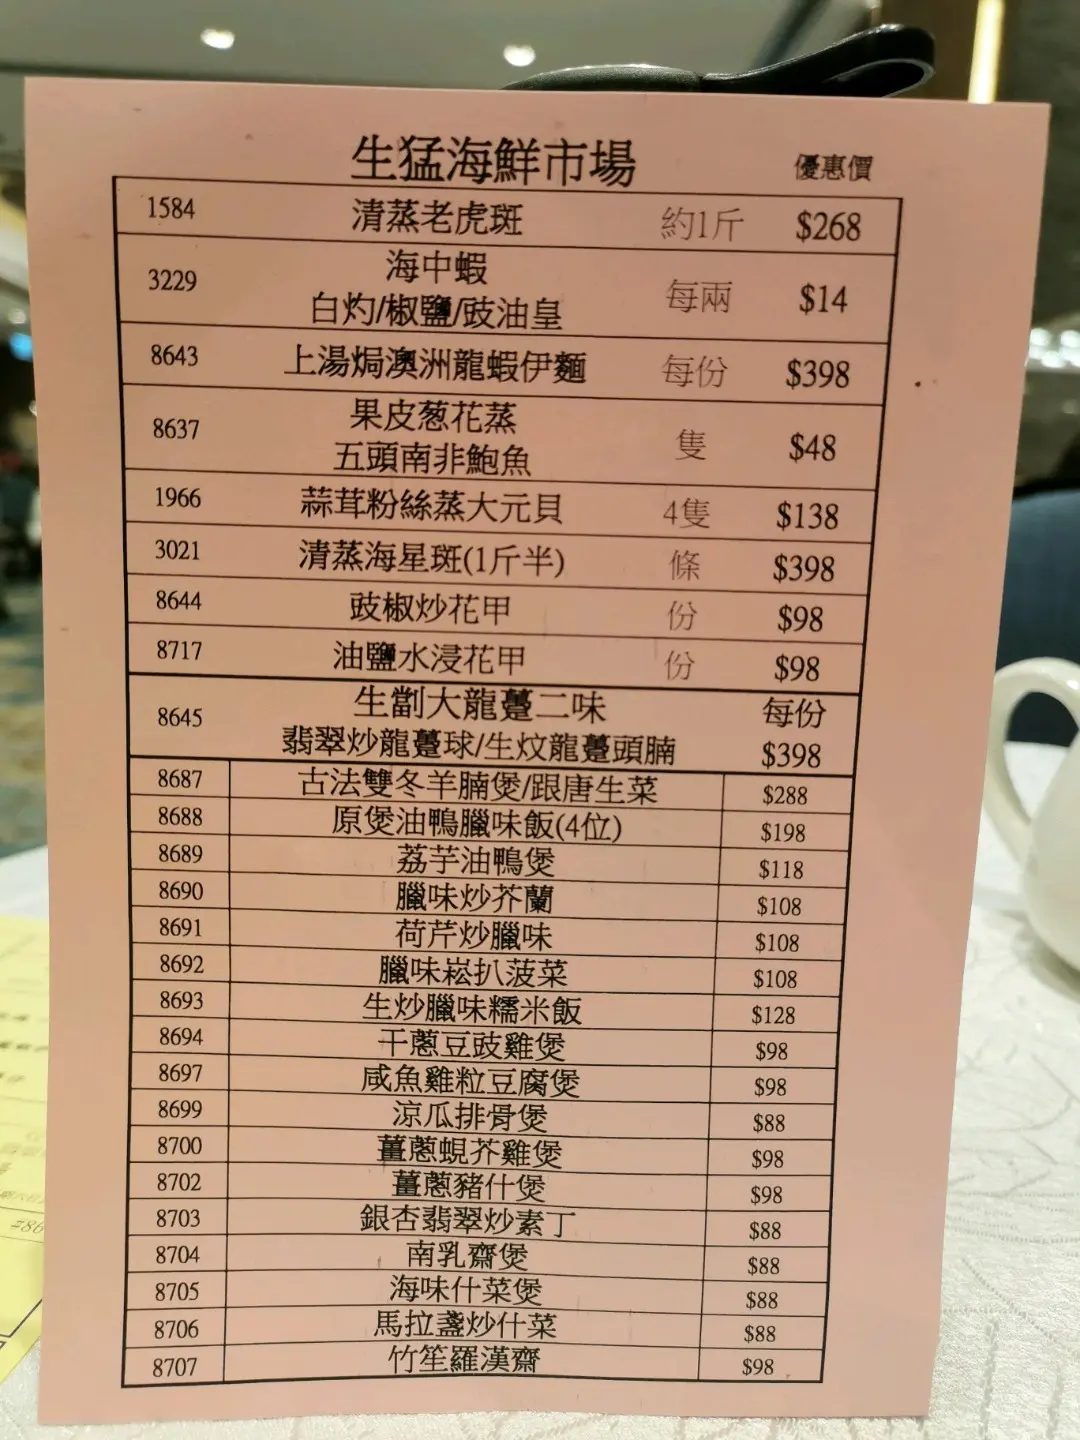 生猛海鮮市場 優惠價
1584 清蒸老虎斑 約1斤 $268
3229 海中蝦 每兩 $14
白灼/椒鹽/豉油皇
8643 上湯焗澳洲龍蝦伊麵 每份 $398
8637 果皮葱花蒸 隻 $48
五頭南非鮑魚
1966 蒜茸粉絲蒸大元貝 4隻 $138
3021 清蒸海星斑(1斤半) 條 $398
8644 豉椒炒花甲 份 $98
8717 油鹽水浸花甲 份 $98
8645 生劏大龍躉二味 每份
翡翠炒龍躉球/生炆龍躉頭腩 $398
8687 古法雙冬羊腩煲/跟唐生菜 $288
8688 原煲油鴨臘味飯(4位) $198
8689 荔芋油鴨煲 $118
8690 臘味炒芥蘭 $108
8691 荷芹炒臘味 $108
8692 臘味崧扒菠菜 $108
8693 生炒臘味糯米飯 $128
8694 干蔥豆豉雞煲 $98
8697 咸魚雞粒豆腐煲 $98
8699 涼瓜排骨煲 $88
8700 薑蔥蜆芥雞煲 $98
8702 薑蔥豬什煲 $98
8703 銀杏翡翠炒素丁 $88
8704 南乳齋煲 $88
8705 海味什菜煲 $88
8706 馬拉盞炒什菜 $88
8707 竹笙羅漢齋 $98